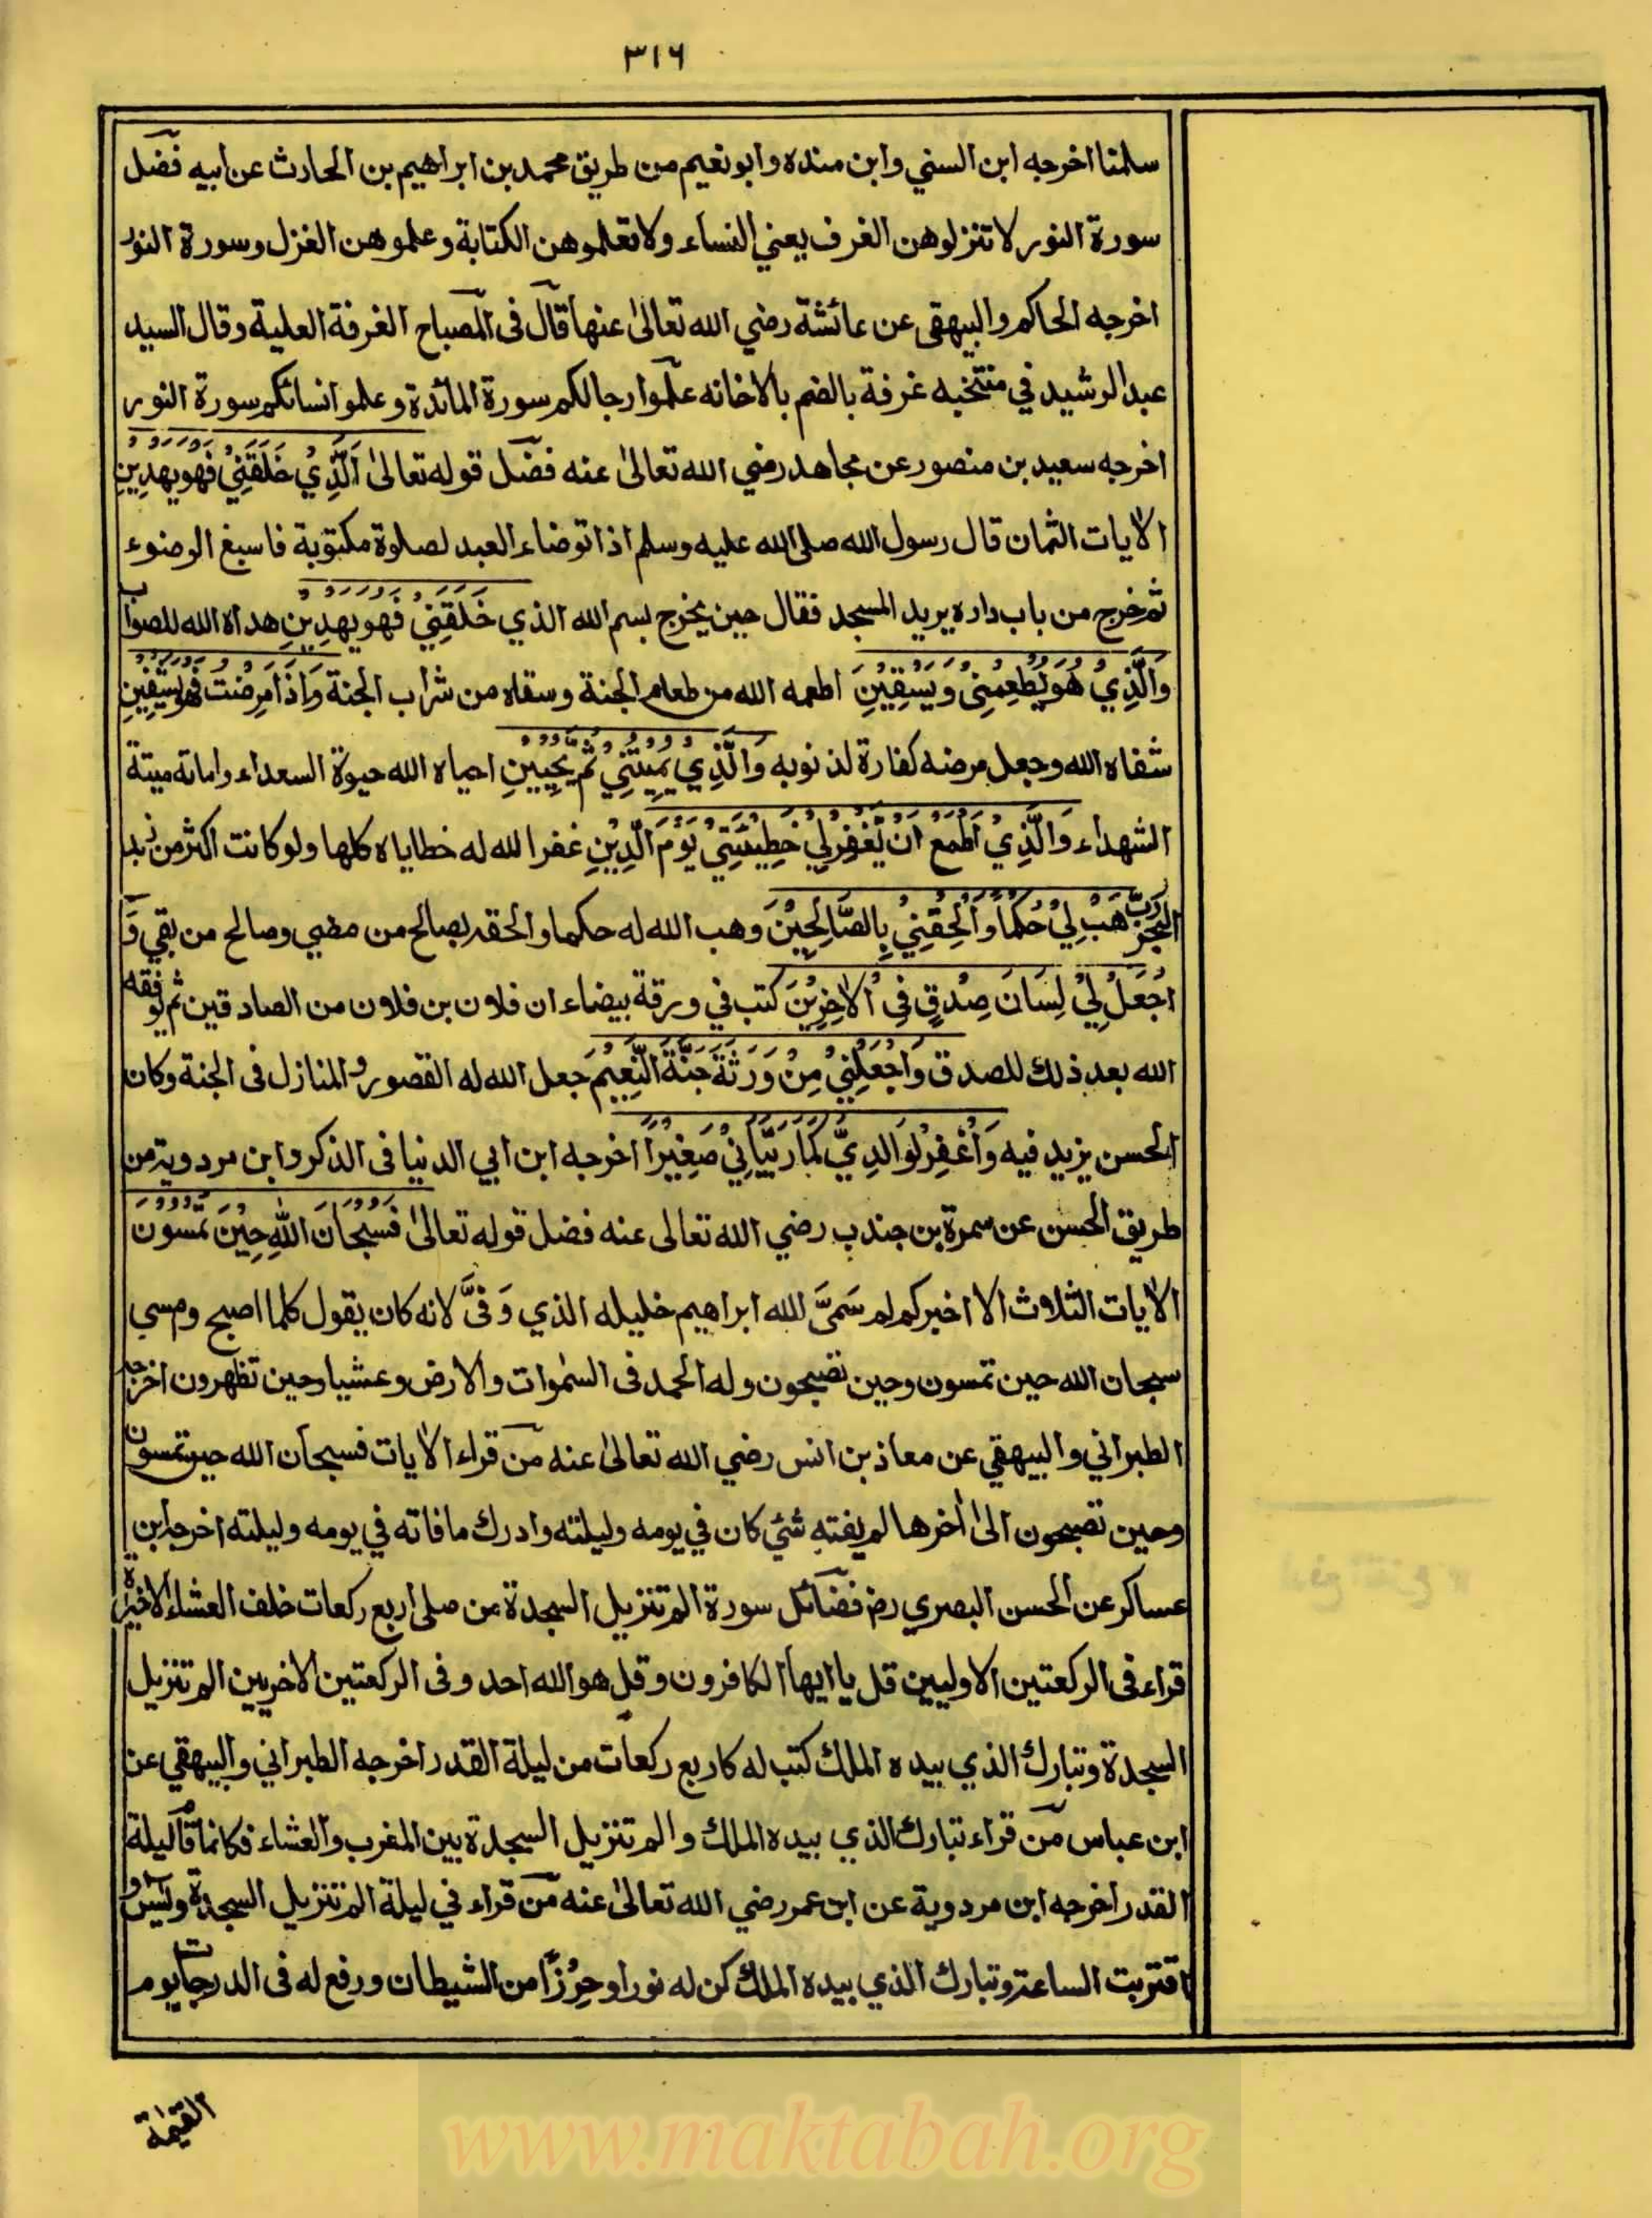 ٣١٦
سلمنا اخرجه ابن السني وابن منده وابو نعيم من طريق محمد بن ابراهيم بن الحارث عن ابيه فضل
سورة النور لا تنزلوهن الغرف يعني النساء ولا تعلموهن الكتابة وعلموهن الغزل وسورة النور
اخرجه الحاكم والبيهقي عن عائشة رضي الله تعالى عنها قال فى المصباح الغرفة العلية وقال السيد
عبد الرشيد في منتخبه غرفة بالضم بالاخانه علموا رجالكم سورة المائدة وعلموا نسائكم سورة النور
اخرجه سعيد بن منصور عن مجاهد رضي الله تعالى عنه فضل قوله تعالى اَلَّذِيْ خَلَقَنِيْ فَهُوَ يَهْدِيْنِ
الايات الثمان قال رسول الله صلى الله عليه وسلم اذا توضاء العبد لصلوة مكتوبة فاسبغ الوضوء
ثم خرج من باب داره يريد المسجد فقال حين يخرج بسم الله الذي خَلَقَنِيْ فَهُوَ يَهْدِيْنِ هداه الله للصواب
وَالَّذِيْ هُوَ يُطْعِمُنِيْ وَيَسْقِيْنِ اطعمه الله من طعام الجنة وسقاه من شراب الجنة وَاِذَا مَرِضْتُ فَهُوَ يَشْفِيْنِ
شفاه الله وجعل مرضه كفارة لذنوبه وَالَّذِيْ يُمِيْتُنِيْ ثُمَّ يُحْيِيْنِ احياه الله حيوة السعداء واماته ميتة
الشهداء وَالَّذِيْ اَطْمَعُ اَنْ يَّغْفِرَ لِيْ خَطِيْئَتِيْ يَوْمَ الدِّيْنِ غفر الله له خطاياه كلها ولو كانت اكثر من زبد
البحر رَبِّ هَبْ لِيْ حُكْمًا وَّاَلْحِقْنِيْ بِالصَّالِحِيْنَ وهب الله له حكما والحقه بصالح من مضي وصالح من بقي وَ
اجْعَلْ لِيْ لِسَانَ صِدْقٍ فِى الْاٰخِرِيْنَ كتب في ورقة بيضاء ان فلان بن فلان من الصادقين ثم يوفقه
الله بعد ذلك للصدق وَاجْعَلْنِيْ مِنْ وَرَثَةِ جَنَّةِ النَّعِيْمِ جعل الله له القصور والمنازل فى الجنة وكان
الحسن يزيد فيه وَاغْفِرْ لِوَالِدِيَّ كَمَا رَبَّيَانِيْ صَغِيْرًا اخرجه ابن ابي الدنيا فى الذكر وابن مردوية من
طريق الحسن عن سمرة بن جندب رضي الله تعالى عنه فضل قوله تعالى فَسُبْحَانَ اللهِ حِيْنَ تُمْسُوْنَ
الايات الثلاث الا اخبركم لم سَمَّى الله ابراهيم خليله الذي وَفّىَّ لانه كان يقول كلما اصبح ومسي
سبحان الله حين تمسون وحين تصبحون وله الحمد فى السمٰوات والارض وعشيا وحين تظهرون اخرجه
الطبراني والبيهقي عن معاذ بن انس رضي الله تعالى عنه من قراء الايات فسبحان الله حين تمسون
وحين تصبحون الى اٰخرها لم يفته شئي كان في يومه وليلته وادرك ما فاته في يومه وليلته اخرجه ابن
عساكر عن الحسن البصري رض فضائل سورة الم تنزيل السجدة من صلى اربع ركعات خلف العشاء الاخيرة
قراء فى الركعتين الاوليين قل يا ايها الكافرون وقل هو الله احد وفى الركعتين الاخريين الم تنزيل
السجدة وتبارك الذي بيده الملك كتب له كاربع ركعات من ليلة القدر اخرجه الطبراني والبيهقي عن
ابن عباس من قراء تبارك الذي بيده الملك والم تنزيل السجدة بين المغرب والعشاء فكانما قام ليلة
القدر اخرجه ابن مردوية عن ابن عمر رضي الله تعالى عنه من قراء في ليلة الم تنزيل السجدة ويٰس و
اقتربت الساعة وتبارك الذي بيده الملك كن له نورا وحِرْزًا من الشيطان ورفع له فى الدرجات يوم
القيمة
www.maktabah.org